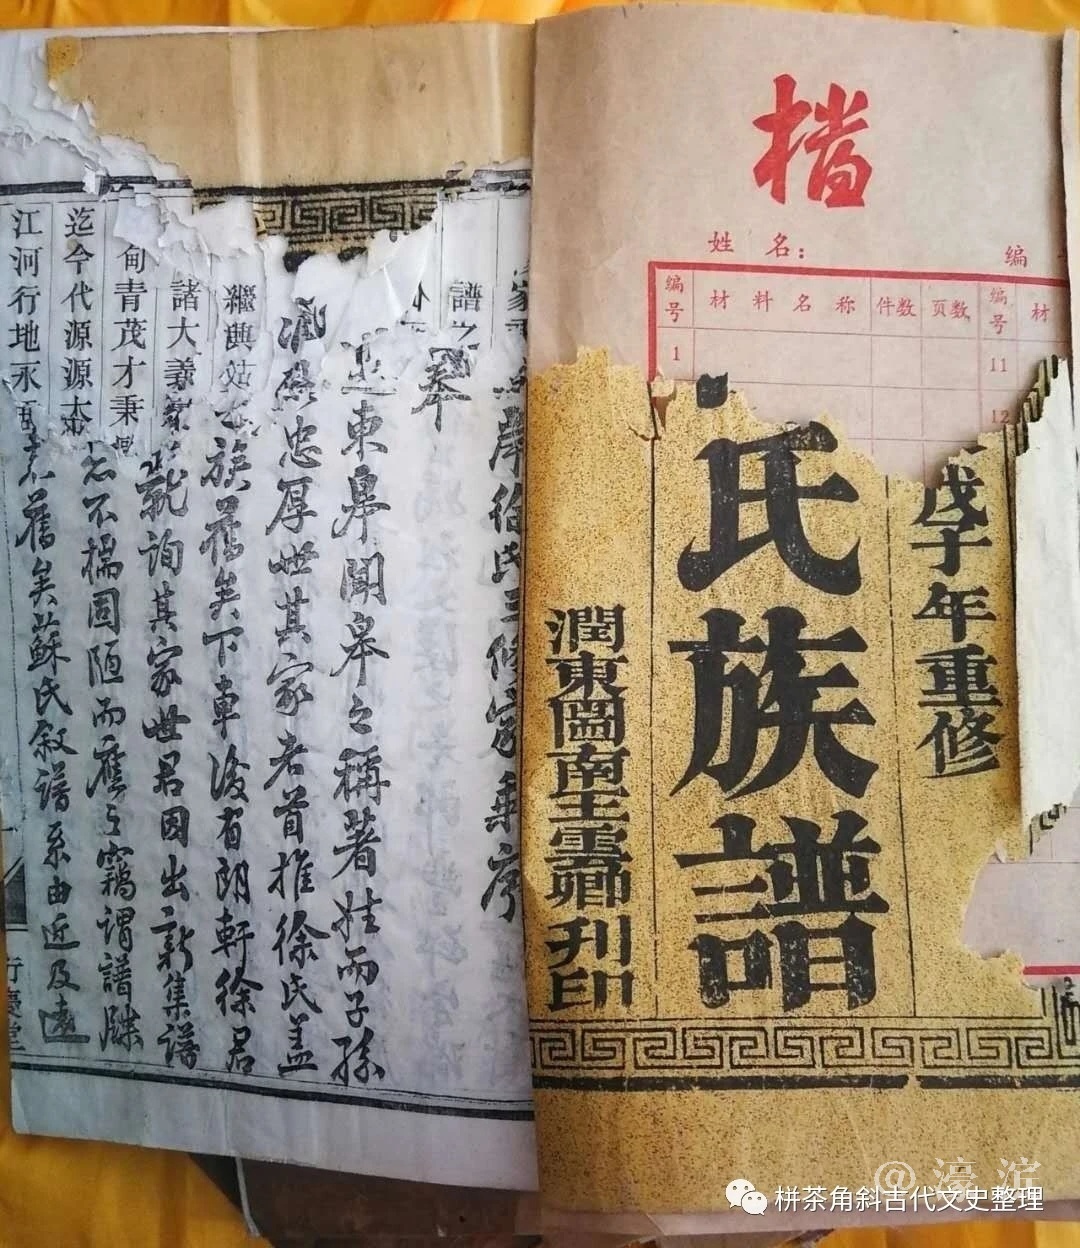 档
姓名:
编
编号 材料名称 件数 页数 编号 材
1
11
12
戊子年重修
氏族譜
潤東圌南王雲卿刊印
徐氏三修家乘序
奉
東皋聞皋之稱著姓而子孫
忠厚世其家者首推徐氏蓋
族舊矣下車後有朗軒徐君
就詢其家世君因出新集譜
不揣固陋而應之竊謂譜牒
舊矣蘇氏敘譜系由近及遠
譜之
繼興
諸大義
甸青茂才秉
迄今代源源
江河行地永
@濠滨
栟茶角斜古代文史整理